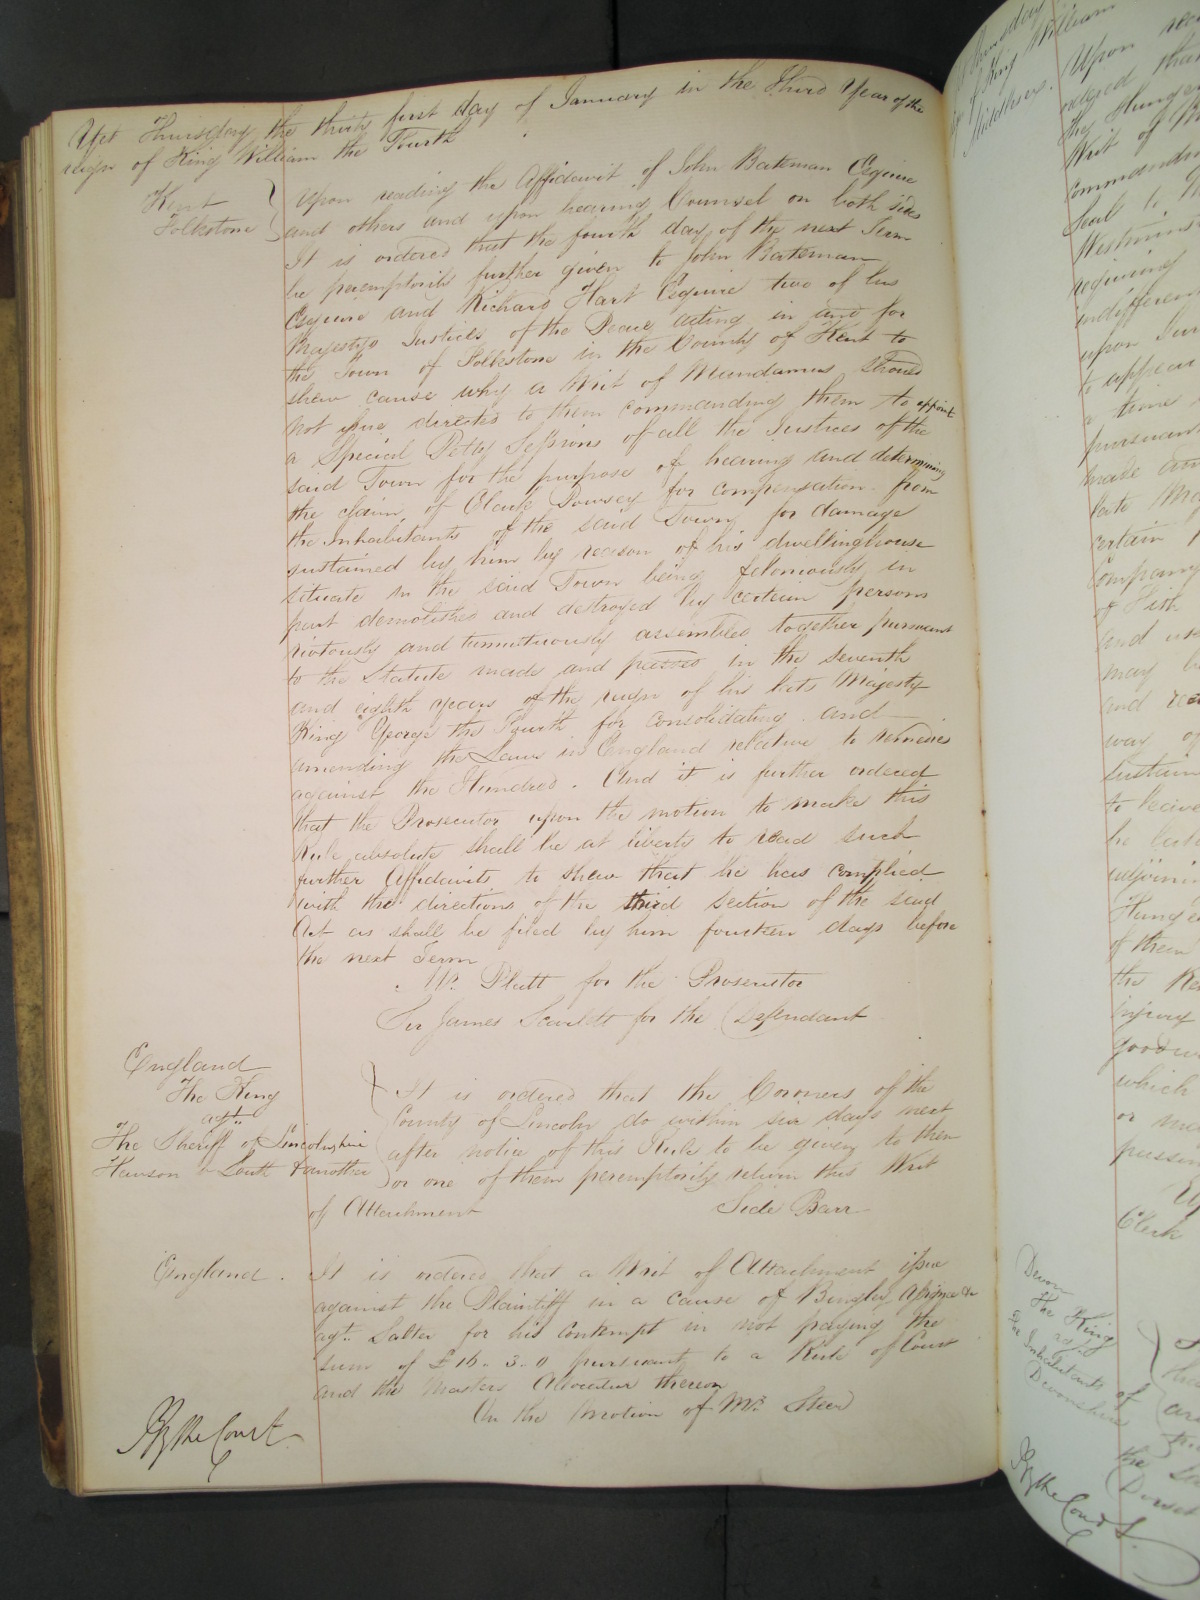 Yet Thursday the thirty first day of January in the Third Year of the
reign of King William the Fourth
Kent
Folkstone
Upon reading the Affidavit of John Bateman Esquire
and others and upon hearing Counsel on both sides
It is ordered that the fourth day of the next Term
be peremptorily further given to John Bateman
Esquire and Richard Hart Esquire two of his
Majesty's Justices of the Peace acting in and for
the Town of Folkstone in the County of Kent to
shew cause why a Writ of Mandamus should
not issue directed to them commanding them to appoint
a Special Petty Sessions of all the Justices of the
said Town for the purpose of hearing and determining
the claim of Clark Dowsey for compensation from
the Inhabitants of the said Town for damage
sustained by him by reason of his dwellinghouse
situate in the said Town being feloniously in
part demolished and destroyed by certain persons
riotously and tumultuously assembled together pursuant
to the Statute made and passed in the seventh
and eighth years of the reign of his late Majesty
King George the Fourth for consolidating and
amending the Laws in England relative to remedies
against the Hundred. And it is further ordered
that the Prosecutor upon the motion to make this
Rule absolute shall be at liberty to read such
further Affidavits to shew that he has complied
with the directions of the third section of the said
Act as shall be filed by him fourteen days before
the next Term
Mr. Platt for the Prosecutor
Sir James Scarlett for the Defendant
England
The King
agt.
The Sheriff of Lincolnshire
Hanson v South & another
It is ordered that the Coroners of the
County of Lincoln do within six days next
after notice of this Rule to be given to them
or one of them peremptorily return this Writ
of Attachment
Side Barr
England.
It is ordered that a Writ of Attachment issue
against the Plaintiff in a cause of Bingley Assignee &c
agt. Salter for his contempt in not paying the
sum of £16.3.0 pursuant to a Rule of Court
and the Masters Allocatur thereon
On the Motion of Mr. Steer
By the Court
Thursday
of King William
Middlesex.
Upon
ordered that
the Hunger
Writ of
command
Seal to
Westminster
requiring
indifferen
upon
to appear
a time
pursuant
make
late
certain
Company
of
and use
may be
and rec
way of
sustain
to
he late
adjoining
Hunger
of them
the
injury
goodw
which
or
passin
Clerk
Devon
The King
agt.
The Inhabitants of
Devonshire
the
Dorset
By the Court